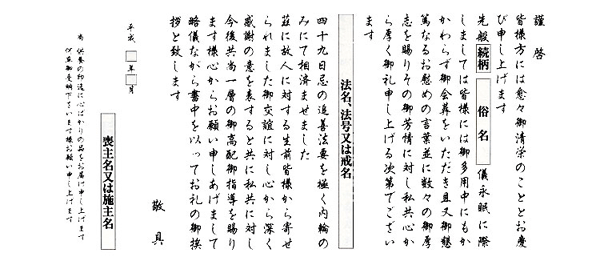 謹啓
皆様方には愈々御清栄のこととお慶
び申し上げます
先般 続柄 俗名 儀永眠に際
しましては皆様には御多用中にもか
かわらず御会葬をいただき且又御懇
篤なるお慰めの言葉並に数々の御厚
志を賜りその御芳情に対し私共心か
ら厚く御礼申し上げる次第でござい
ます
法名、法号又は戒名
四十九日忌の追善法要を極く内輪の
みにて相済ませました
茲に故人に対する生前皆様から寄せ
られました御交誼に対し心から深く
感謝の意を表すると共に私共に対し
今後共尚一層の御高配御指導を賜り
ます様心からお願い申しあげまして
略儀ながら書中を以ってお礼の御挨
拶と致します
敬具
平成 年 月
喪主名又は施主名
尚 供養の印迄に心ばかりの品をお届け申し上げます
何卒御受納下さいます様お願い申し上げます